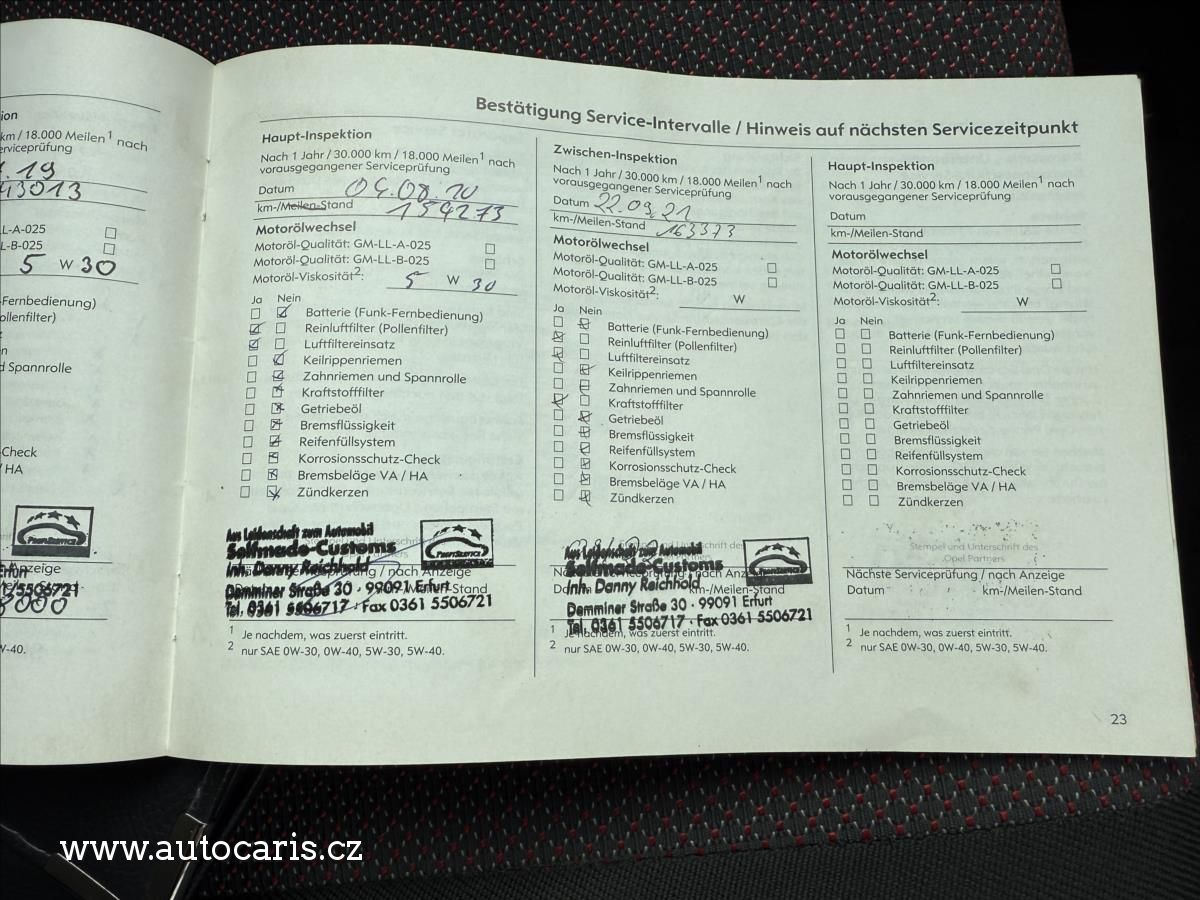 ion
km / 18.000 Meilen1 nach
erviceprüfung
.19
43013
LL-A-025
L-B-025
5 W 30
-Fernbedienung)
ollenfilter)
n
d Spannrolle
Check
/ HA
PROFISERVICE
Anzeige
Erfurt
5506721
W-40.
Bestätigung Service-Intervalle / Hinweis auf nächsten Servicezeitpunkt
Haupt-Inspektion
Nach 1 Jahr / 30.000 km / 18.000 Meilen1 nach
vorausgegangener Serviceprüfung
Datum 04.08.20
km-/Meilen-Stand 154273
Motorölwechsel
Motoröl-Qualität: GM-LL-A-025
Motoröl-Qualität: GM-LL-B-025
Motoröl-Viskosität2: 5 W 30
Ja Nein
Batterie (Funk-Fernbedienung)
Reinluftfilter (Pollenfilter)
Luftfiltereinsatz
Keilrippenriemen
Zahnriemen und Spannrolle
Kraftstofffilter
Getriebeöl
Bremsflüssigkeit
Reifenfüllsystem
Korrosionsschutz-Check
Bremsbeläge VA / HA
Zündkerzen
Aus Leidenschaft zum Automobil
Selfmade-Customs
Inh. Danny Reichhold
Demminer Straße 30 · 99091 Erfurt
Tel. 0361 5506717 · Fax 0361 5506721
PROFISERVICE
nach Anzeige
1 Je nachdem, was zuerst eintritt.
2 nur SAE 0W-30, 0W-40, 5W-30, 5W-40.
Zwischen-Inspektion
Nach 1 Jahr / 30.000 km / 18.000 Meilen1 nach
vorausgegangener Serviceprüfung
Datum 22.09.21
km-/Meilen-Stand 163373
Motorölwechsel
Motoröl-Qualität: GM-LL-A-025
Motoröl-Qualität: GM-LL-B-025
Motoröl-Viskosität2: W
Ja Nein
Batterie (Funk-Fernbedienung)
Reinluftfilter (Pollenfilter)
Luftfiltereinsatz
Keilrippenriemen
Zahnriemen und Spannrolle
Kraftstofffilter
Getriebeöl
Bremsflüssigkeit
Reifenfüllsystem
Korrosionsschutz-Check
Bremsbeläge VA / HA
Zündkerzen
Aus Leidenschaft zum Automobil
Selfmade-Customs
Inh. Danny Reichhold
Demminer Straße 30 · 99091 Erfurt
Tel. 0361 5506717 · Fax 0361 5506721
PROFISERVICE
km-/Meilen-Stand
1 Je nachdem, was zuerst eintritt.
2 nur SAE 0W-30, 0W-40, 5W-30, 5W-40.
Haupt-Inspektion
Nach 1 Jahr / 30.000 km / 18.000 Meilen1 nach
vorausgegangener Serviceprüfung
Datum
km-/Meilen-Stand
Motorölwechsel
Motoröl-Qualität: GM-LL-A-025
Motoröl-Qualität: GM-LL-B-025
Motoröl-Viskosität2: W
Ja Nein
Batterie (Funk-Fernbedienung)
Reinluftfilter (Pollenfilter)
Luftfiltereinsatz
Keilrippenriemen
Zahnriemen und Spannrolle
Kraftstofffilter
Getriebeöl
Bremsflüssigkeit
Reifenfüllsystem
Korrosionsschutz-Check
Bremsbeläge VA / HA
Zündkerzen
Stempel und Unterschrift des
Opel Partners
Nächste Serviceprüfung / nach Anzeige
Datum km-/Meilen-Stand
1 Je nachdem, was zuerst eintritt.
2 nur SAE 0W-30, 0W-40, 5W-30, 5W-40.
23
www.autocaris.cz